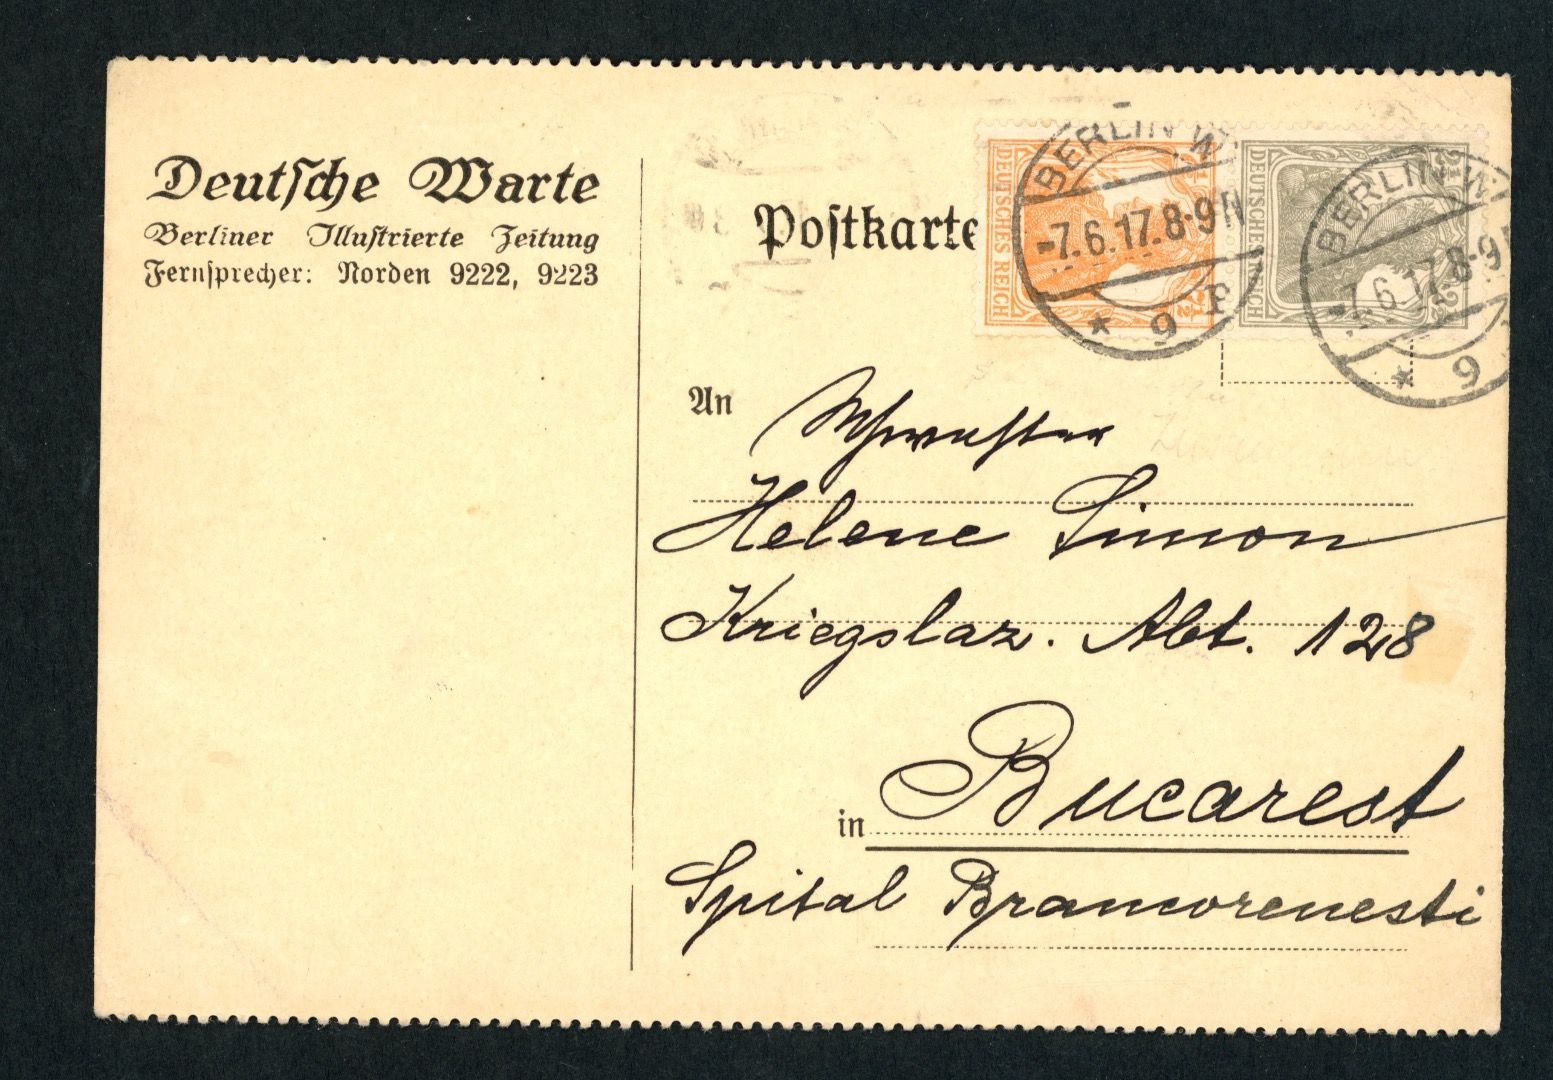 Deutsche Warte
Berliner Illustrierte Zeitung
Fernsprecher: Norden 9222, 9223
Postkarte
DEUTSCHES REICH
2½
DEUTSCHES REICH
2½
2½
BERLIN W
-7.6.17. 8-9N
* 9 P
BERLIN W
-7.6.17. 8-9N
* 9
An
Schwester
Helene Simon
Kriegslaz. Abt. 128
in Bucarest
Spital Brancorenesti